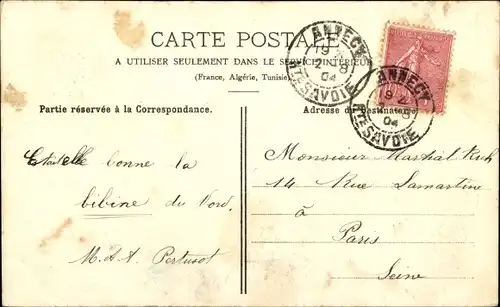 CARTE POSTALE
A UTILISER SEULEMENT DANS LE SERVICE INTÉRIEUR
(France, Algérie, Tunisie)
Partie réservée à la Correspondance.
Adresse du Destinataire
ANNECY
19
2 - 8
04
Hte SAVOIE
ANNECY
19
2 - 8
04
Hte SAVOIE
Était-elle bonne la
bibine du Nord.
M. A. A. Pertusot
Monsieur Martial
14 Rue Lamartine
à
Paris
Seine